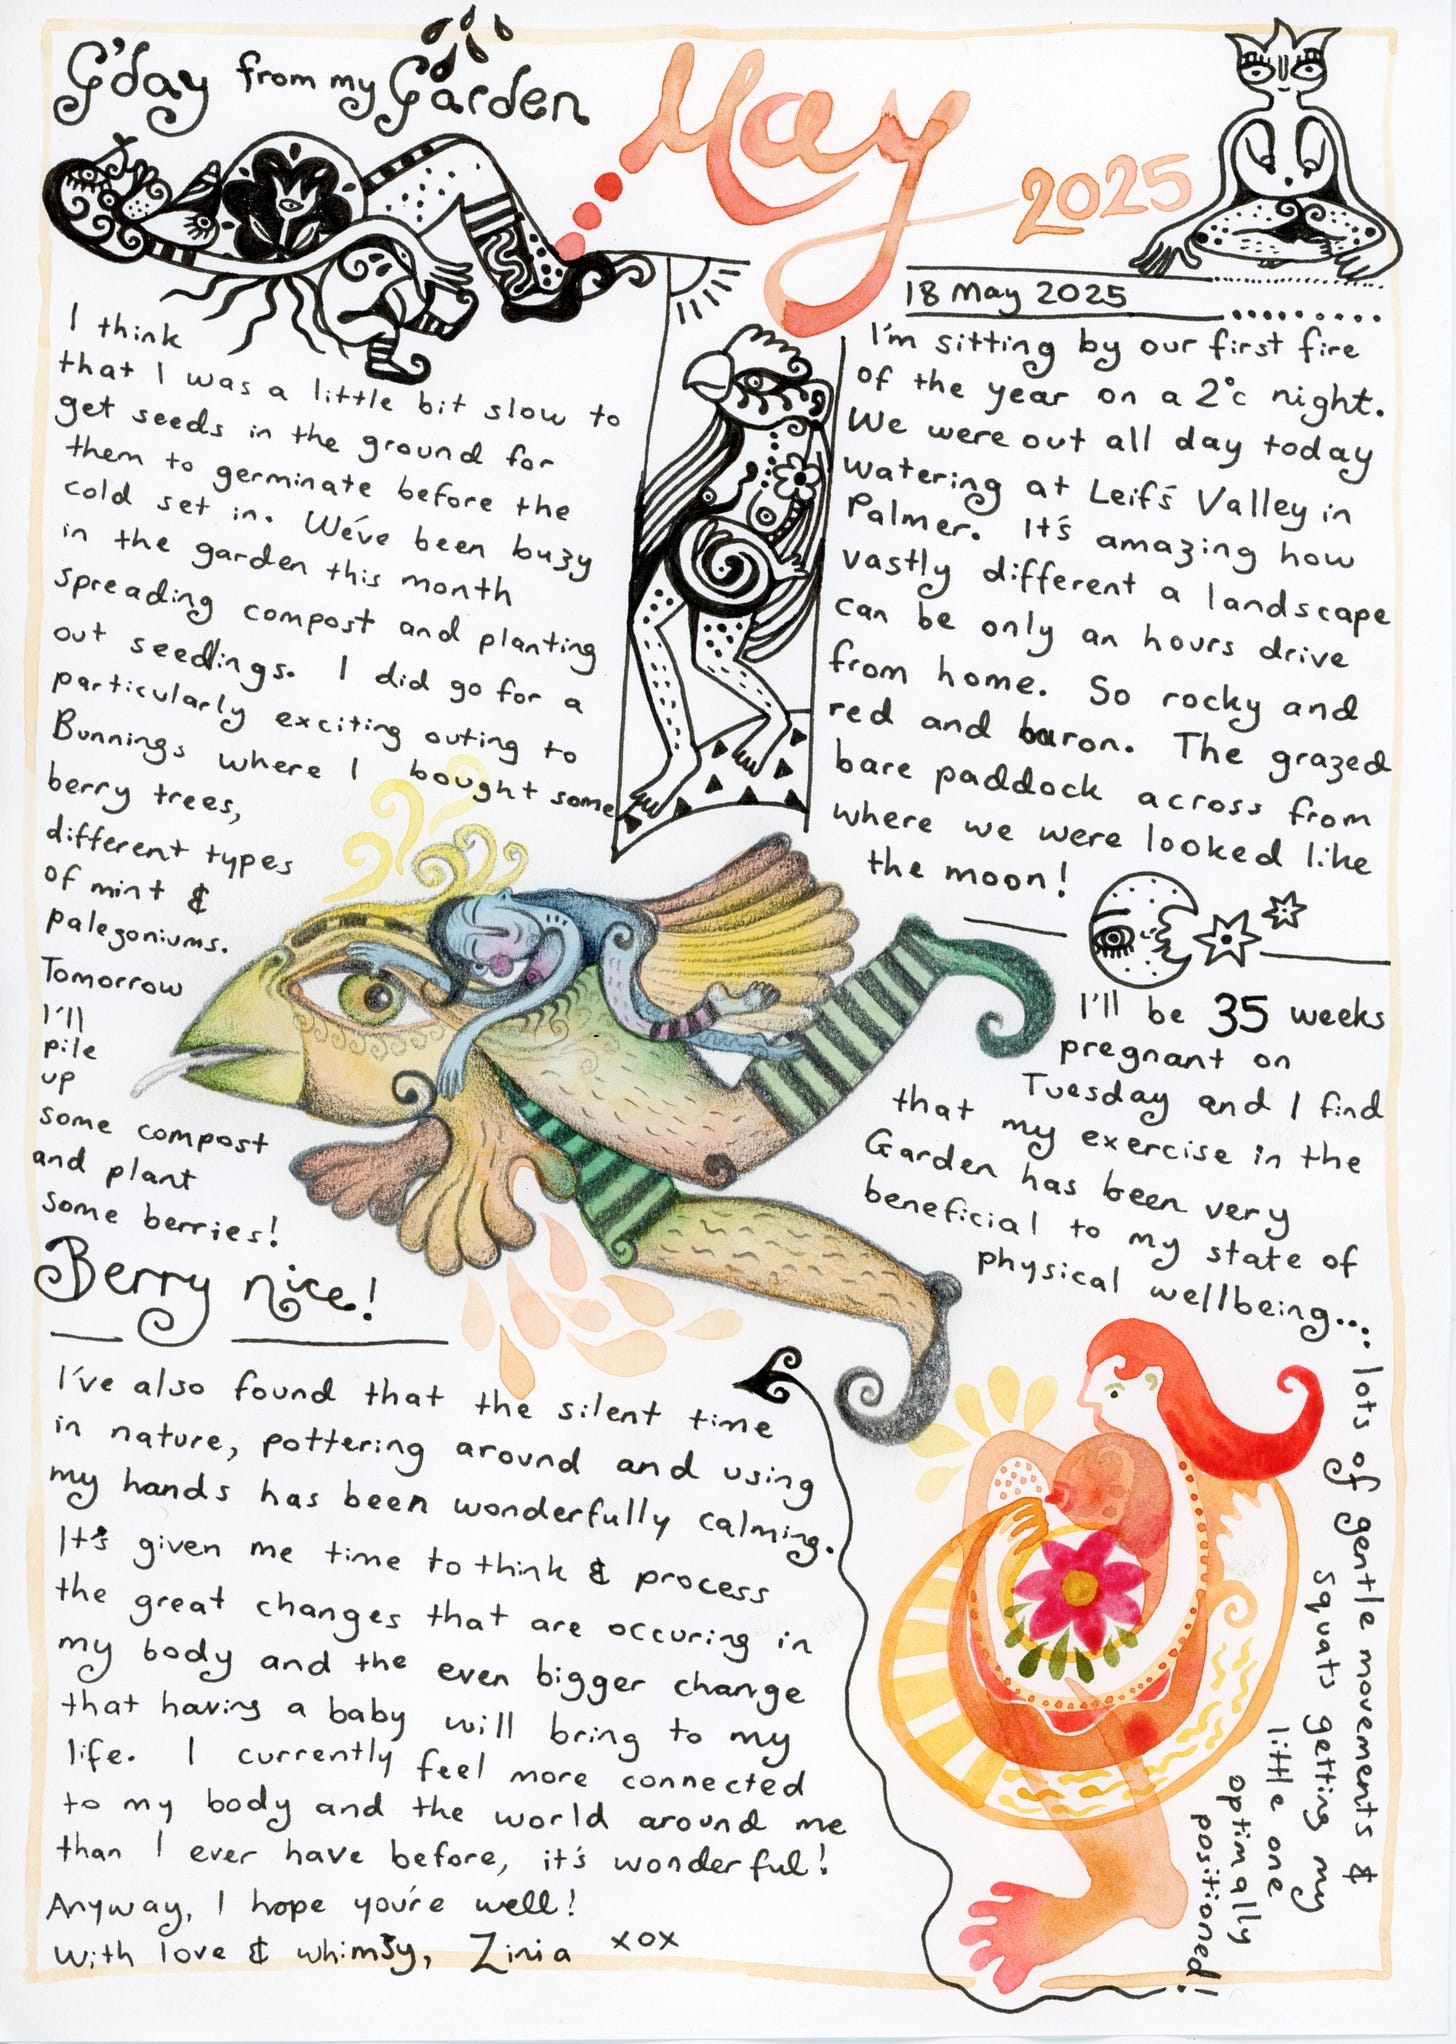 G'day from my Garden
May
2025
I think
that I was a little bit slow to
get seeds in the ground for
them to germinate before the
cold set in. We've been buzy
in the garden this month
spreading compost and planting
out seedlings. I did go for a
particularly exciting outing to
Bunnings where I bought some
berry trees,
different types
of mint &
palegoniums.
Tomorrow
I'll
pile
up
some compost
and plant
some berries!
Berry nice!
I've also found that the silent time
in nature, pottering around and using
my hands has been wonderfully calming.
It's given me time to think & process
the great changes that are occuring in
my body and the even bigger change
that having a baby will bring to my
life. I currently feel more connected
to my body and the world around me
than I ever have before, it's wonderful!
Anyway, I hope you're well!
With love & whimsy, Zinia xox
18 May 2025
I'm sitting by our first fire
of the year on a 2°c night.
We were out all day today
watering at Leif's Valley in
Palmer. It's amazing how
vastly different a landscape
can be only an hours drive
from home. So rocky and
red and baron. The grazed
bare paddock across from
where we were looked like
the moon!
I'll be 35 weeks
pregnant on
Tuesday and I find
that my exercise in the
Garden has been very
beneficial to my state of
physical wellbeing...
lots of gentle movements &
squats getting my
little one
optimally
positioned!